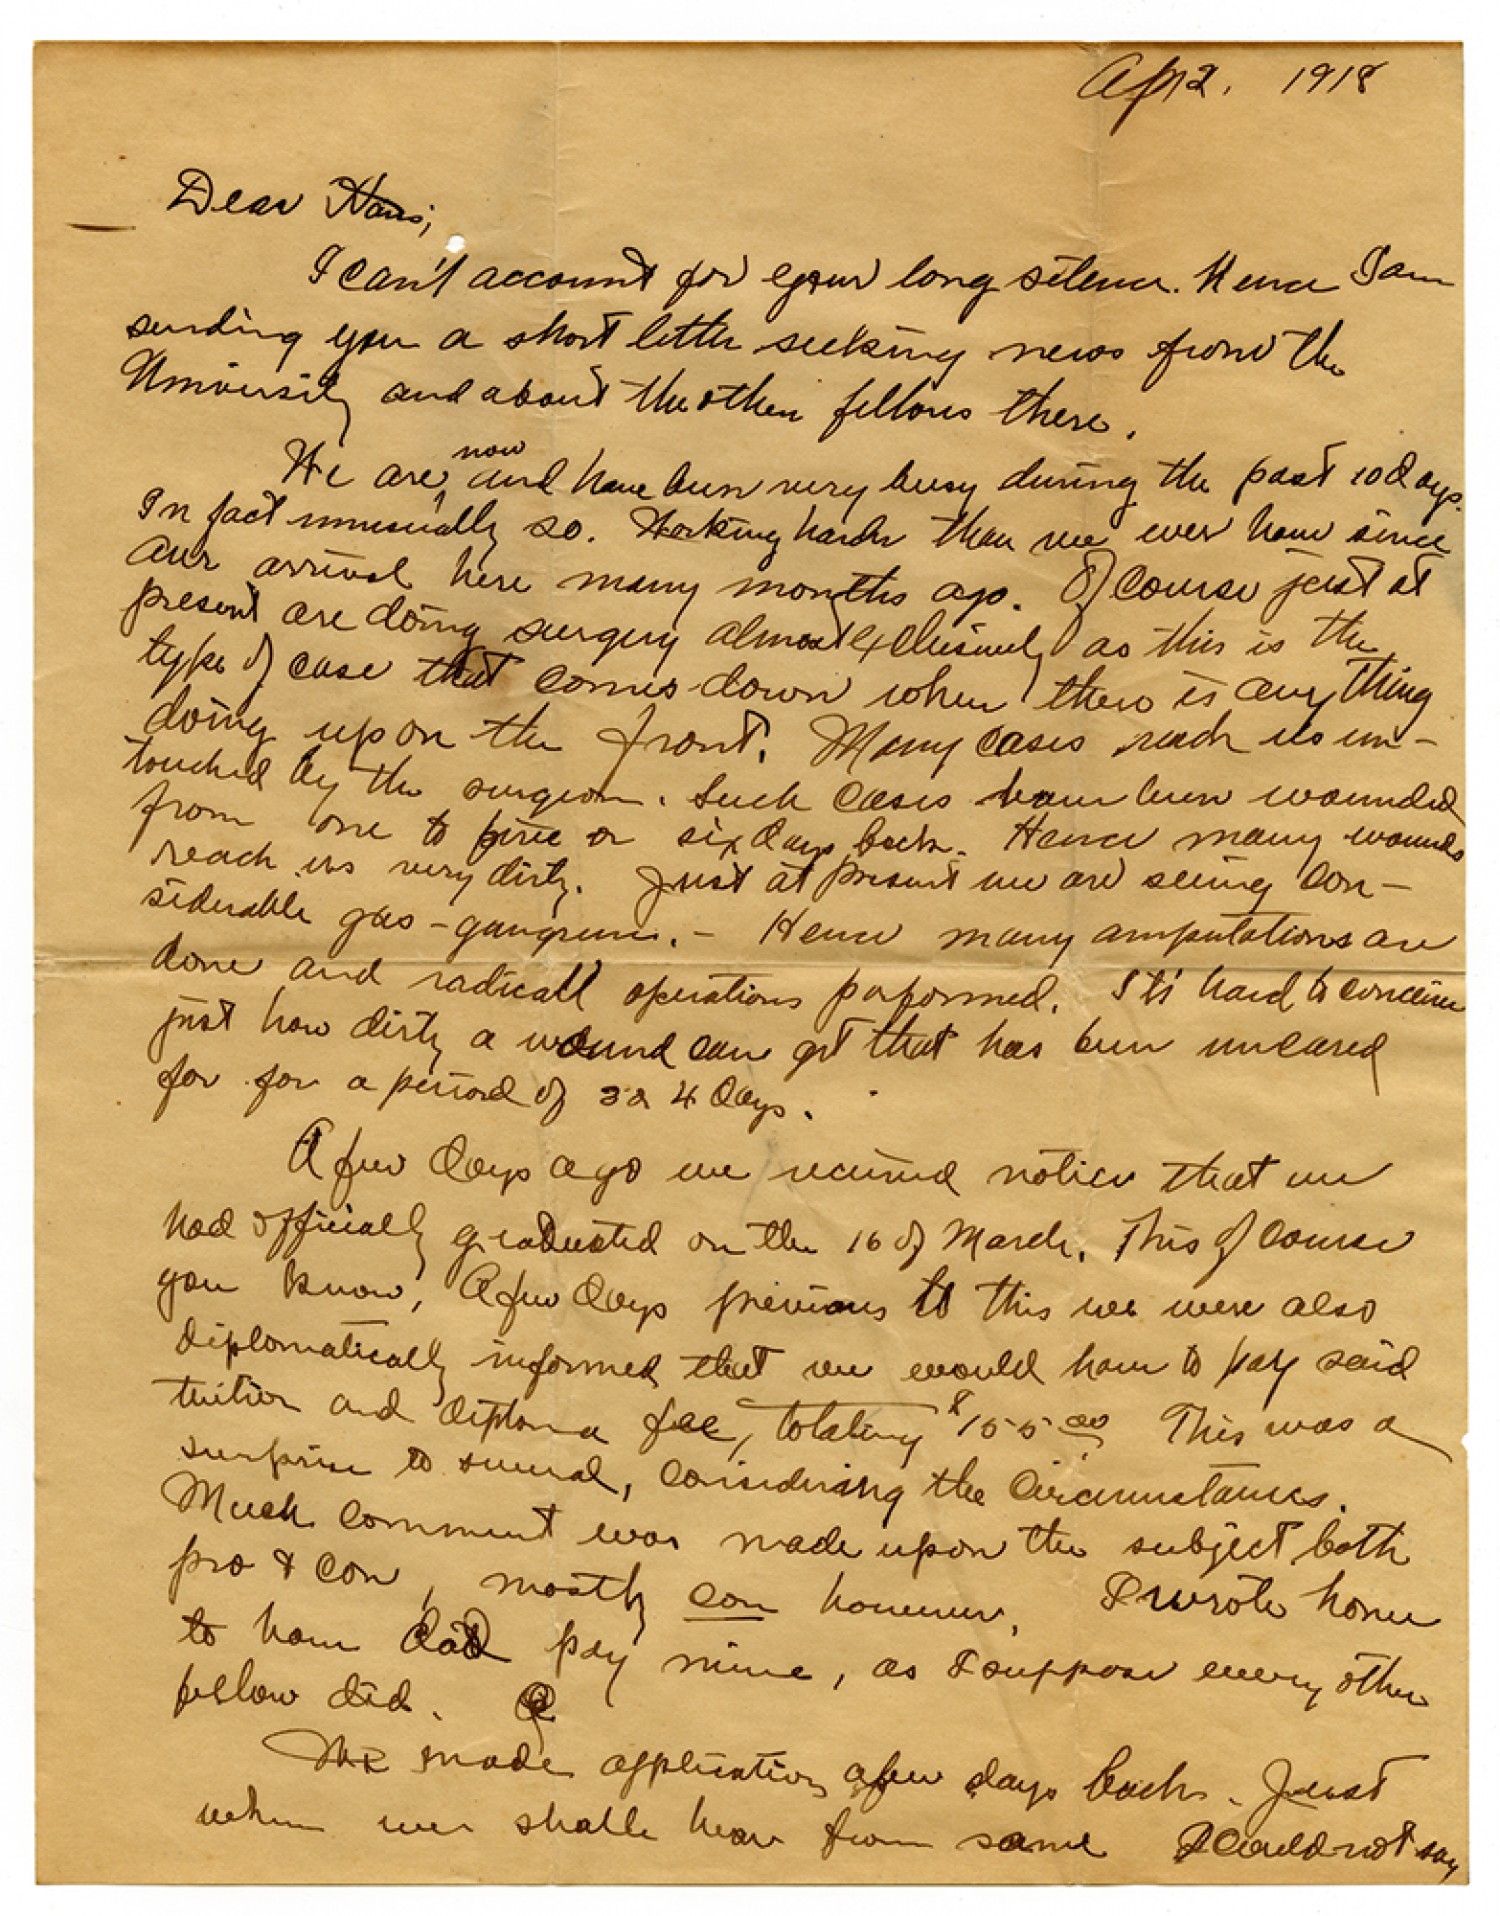 Apr 2, 1918
Dear Hans;
I can't account for your long silence. Hence I am
sending you a short letter seeking news from the
University and about the other fellows there.
We are now and have been very busy during the past 10 days.
In fact unusually so. Working harder than we ever have since
our arrival here many months ago. Of course just at
present are doing surgery almost exclusively as this is the
type of case that comes down when there is anything
doing up on the front. Many cases reach us un-
touched by the surgeon. Such cases have been wounded
from one to five or six days back. Hence many wounds
reach us very dirty. Just at present we are seeing con-
siderable gas-gangrene. - Hence many amputations are
done and radicall operations performed. Its' hard to conceive
just how dirty a wound can get that has been uncared
for for a period of 3 or 4 days.
A few days ago we received notice that we
had officially graduated on the 16 of March. This of course
you know. A few days previous to this we were also
diplomatically informed that we would have to pay said
tuition and diploma fee, totaling $155.00 This was a
surprise to several, considering the circumstances.
Much comment was made upon the subject both
pro & con, mostly con however. I wrote home
to have dad pay mine, as I suppose every other
fellow did.
We made application a few days back. Just
when we shall hear from same I could not say